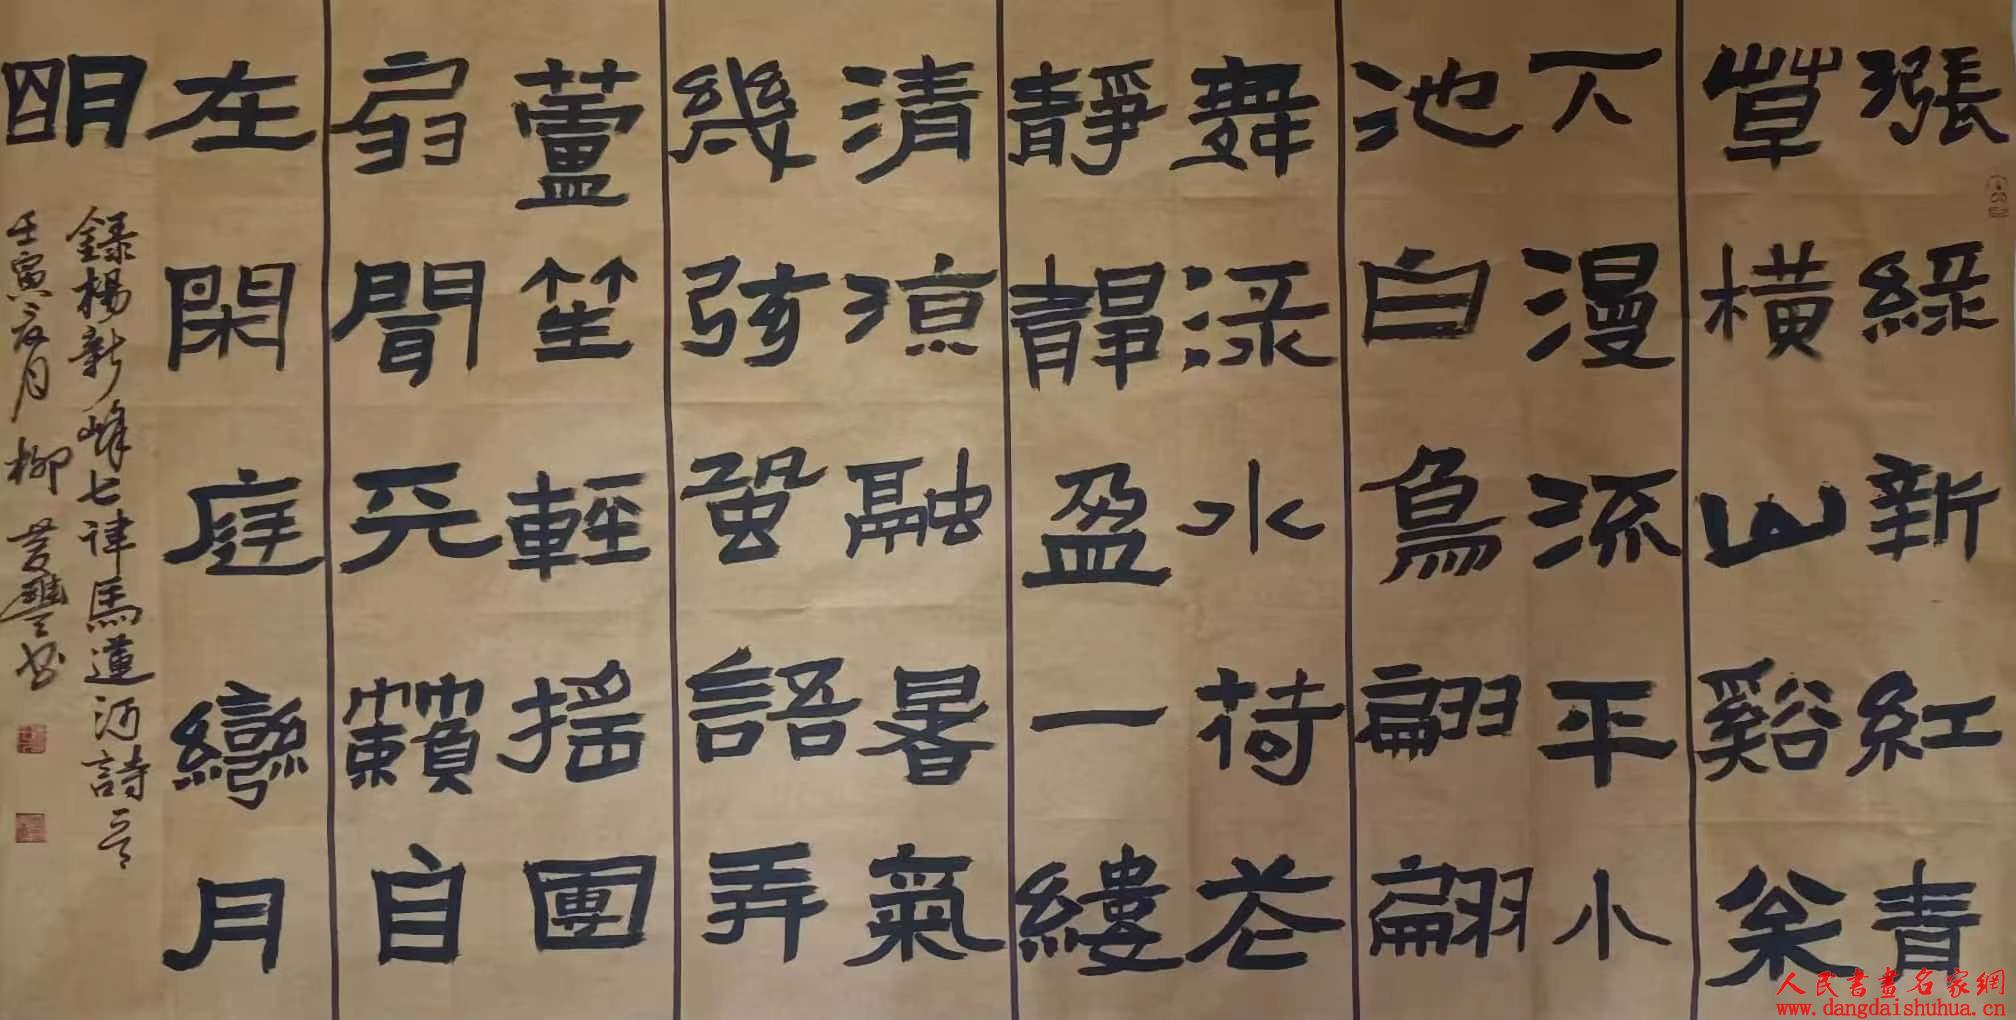 漲綠新紅青
草橫山谿
下漫流平小
池白鳥翩翩
舞淥水荷花
靜靜盈一縷
清涼融暑氣
幾弦蛩語弄
蘆笙輕搖團
扇聞天籟自
在閑庭彎月
明
錄楊新峰七律馬蓮河詩一首
壬寅六月 柳 書
人民書畫名家網
www.dangdaishuhua.cn